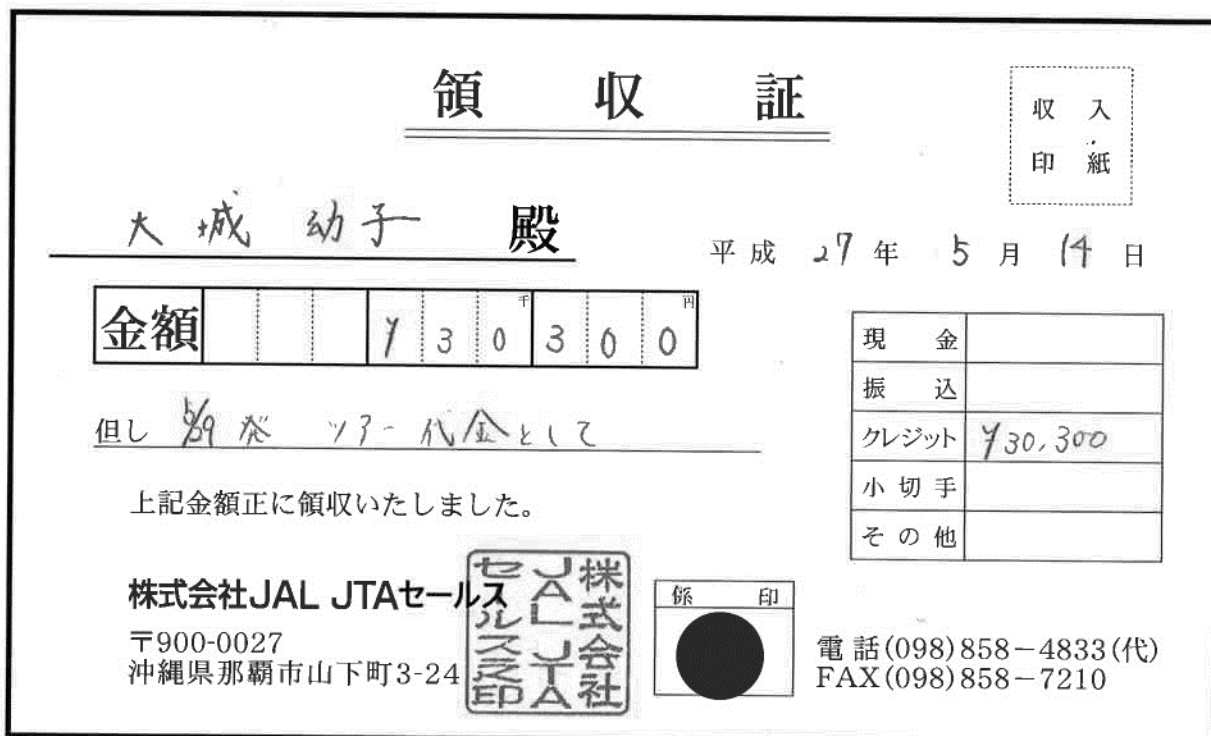 領収証
収入
印紙
大城 幼子 殿
平成 27 年 5 月 14 日
金額 ¥30千300円
但し 5/29 発 ツアー代金として
現金
振込
クレジット ¥30,300
小切手
その他
上記金額正に領収いたしました。
株式会社JAL JTAセールス
〒900-0027
沖縄県那覇市山下町3-24
株式会社
JAL JTA
セールス之印
係印
電話(098)858-4833(代)
FAX(098)858-7210